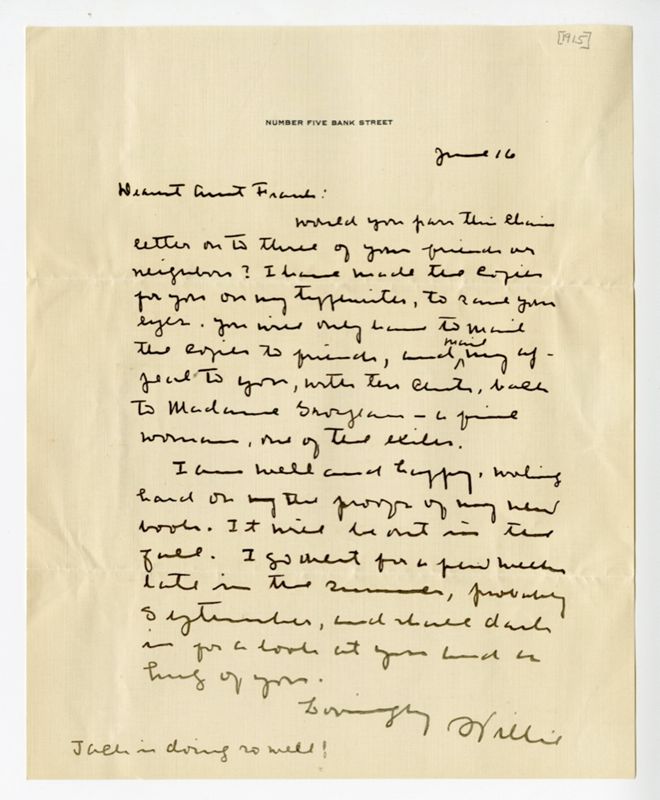 [1915]
NUMBER FIVE BANK STREET
June 16
Dearest Aunt Franc:
Would you pass this chain
letter on to three of your friends or
neighbors? I have made the copies
for you on my typewriter, to save your
eyes. You will only have to mail
the copies to friends, and mail my ap-
peal to you, with ten cents, back
to Madame - a fine
woman, one of the exiles.
I am well and happy, working
hard on the proofs of my new
book. It will be out in the
fall. I go west for a few weeks
late in the summer, probably
September, and shall dash
in for a look at you and a
hug of you.
Lovingly Willie
Jack is doing so well!